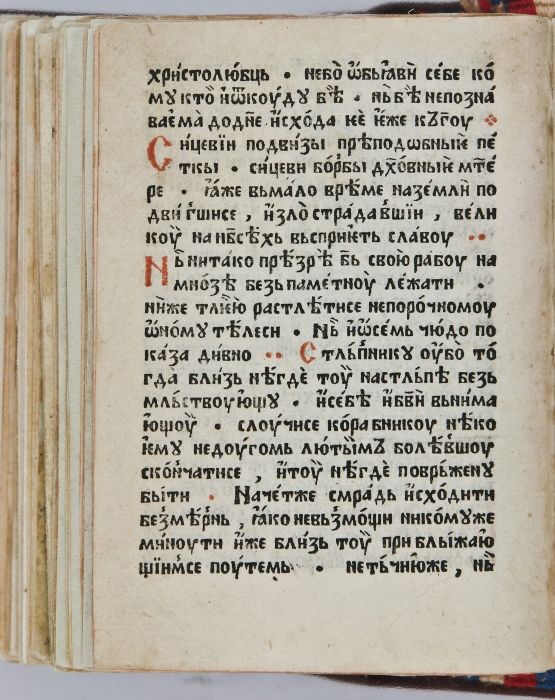 христолю́бць • небо̀ ѡ҆бы́ꙗви се́бе ко́
му кто̀ и҆ѿкоу́ду бѣ̀ • нь̀ бѣ непозна́
ваема̀ до дн҃е и҆схо́да кѐ и҆́же къ г҃оу ❖
Си́цевїи подви́зы прѣподѡбные пе́
ткы • си́цеви бо́рбы дх҃о́вные мт҃е
ре • ꙗ҆́же вьма́ло врѣ́ме на зе́мли по
дви́гшисе , и҆ ѕло̀ страда́вшїи , ве́ли
коу̀ на нб҃се́хь вьспри́еть сла́воу ••
Нь ни та́ко прѣ́зрѣ бь҃ свою̀ рабоу на
мно́зѣ безь па́метноу̀ ле́жати •
ни́же тлїе́ю растлѣ́тисе непоро́чномоу
ѡ҆но́му тѣ́леси • Нь̀ и҆ ѡ҆ се́мь чю́до по
ка́за ди́вно •• Стль́пнику оу҆́бо то́
гда бли́зь нѣ́гдѐ тоу̀ на сть́лпѣ безь
мль́ствоую́щу • и҆ се́бѣ и҆ бг҃ѝ внима
ю́щоу • слоу́чисе кора́бникоу нѣ́ко
е҆му недоу́гомь лю́тыимъ болѣ́вшоу
ско́нчатисе , и҆ тоу̀ нѣ́гдѐ поврь́жену
бы́ти • Наче́тже смра́дь и҆схо́дити
безмѣ́рнь , ꙗ҆́ко невьзмо́щи нико́му же
ми́ноути и҆́же бли́зь тоу̀ при бли́жаю
щїи́мсе поу́темь • не ть́чїю же , нь̀